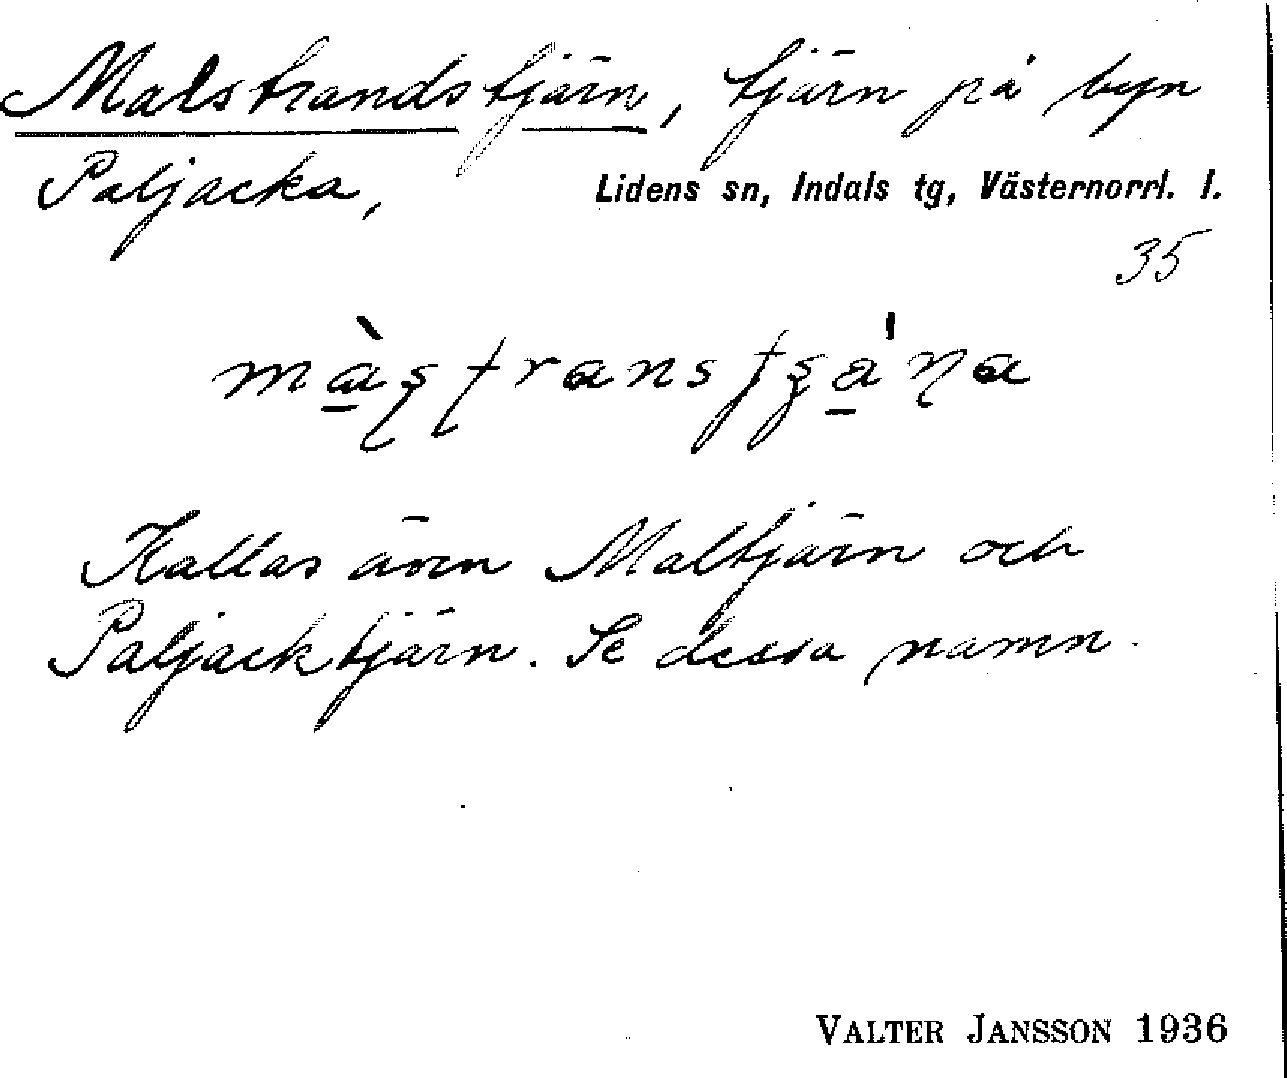 Malstrandstjärn, tjärn på byn
Paljacka, Lidens sn, Indals tg, Västernorrl. l.
35
Kallas även Maltjärn och
Paljacktjärn. Se dessa namn.
VALTER JANSSON 1936